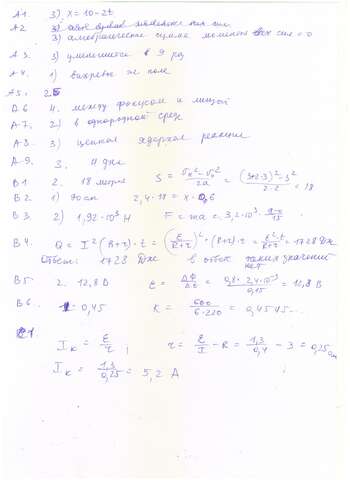 А1. 3) x = 10 - 2t
А2
3) алгебраическая сумма моментов всех сил = 0
А3. 3) уменьшится в 9 раз
А4. 1) вихревое эл. поле
А5. 2
4. между фокусом и линзой
А7. 2) в однородной среде
А8. 3) цепная ядерная реакция
А9. 3. 4 дня
В1 2. 18 метров S = (υк² - υ₀²)/2a = 18
В2. 1) 70 см 2,4 · 18 = x · 0,6
В3 2) 1,92·10³ Н F = ma = 3,2·10³ ·
В4. Q = I²(R+r)·t = (ε/(R+r))² · (R+r)·t = ε²t/(R+r) = 1728 Дж
Ответ: 1728 Дж в ответ таких значений нет
В5. 2. 12,8 В ε = ΔФ/Δt = = 12,8 В
В6. 0,45 К = 600/(6·220) = 0,4545...
Iк = ε/r ; r = ε/I - R = 1,3/0,4 - 3 = 0,25 Ом
Iк = 1,3/0,25 = 5,2 А